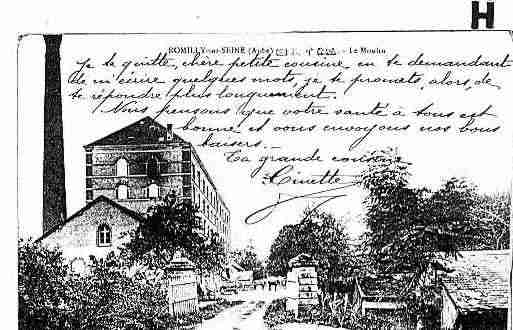 H
ROMILLY-sur-SEINE (Aube) - Le Moulin
Je te quitte, chère petite cousine, en te demandant
de m'écrire quelques mots, je te promets, alors, de
te répondre plus longuement.
Nous pensons que votre santé à tous est
bonne et vous envoyons nos bons
baisers. -
Ta grande cousine
Ginette